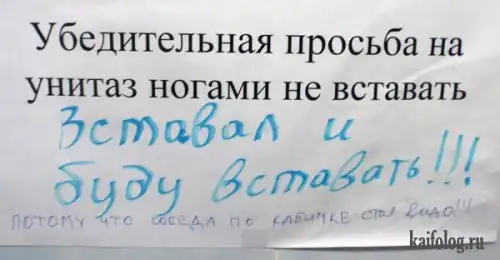 Убедительная просьба на
унитаз ногами не вставать
Вставал и
буду вставать!!!
ПОТОМУ ЧТО СОСЕДА ПО КАБИНКЕ
kaifolog.ru